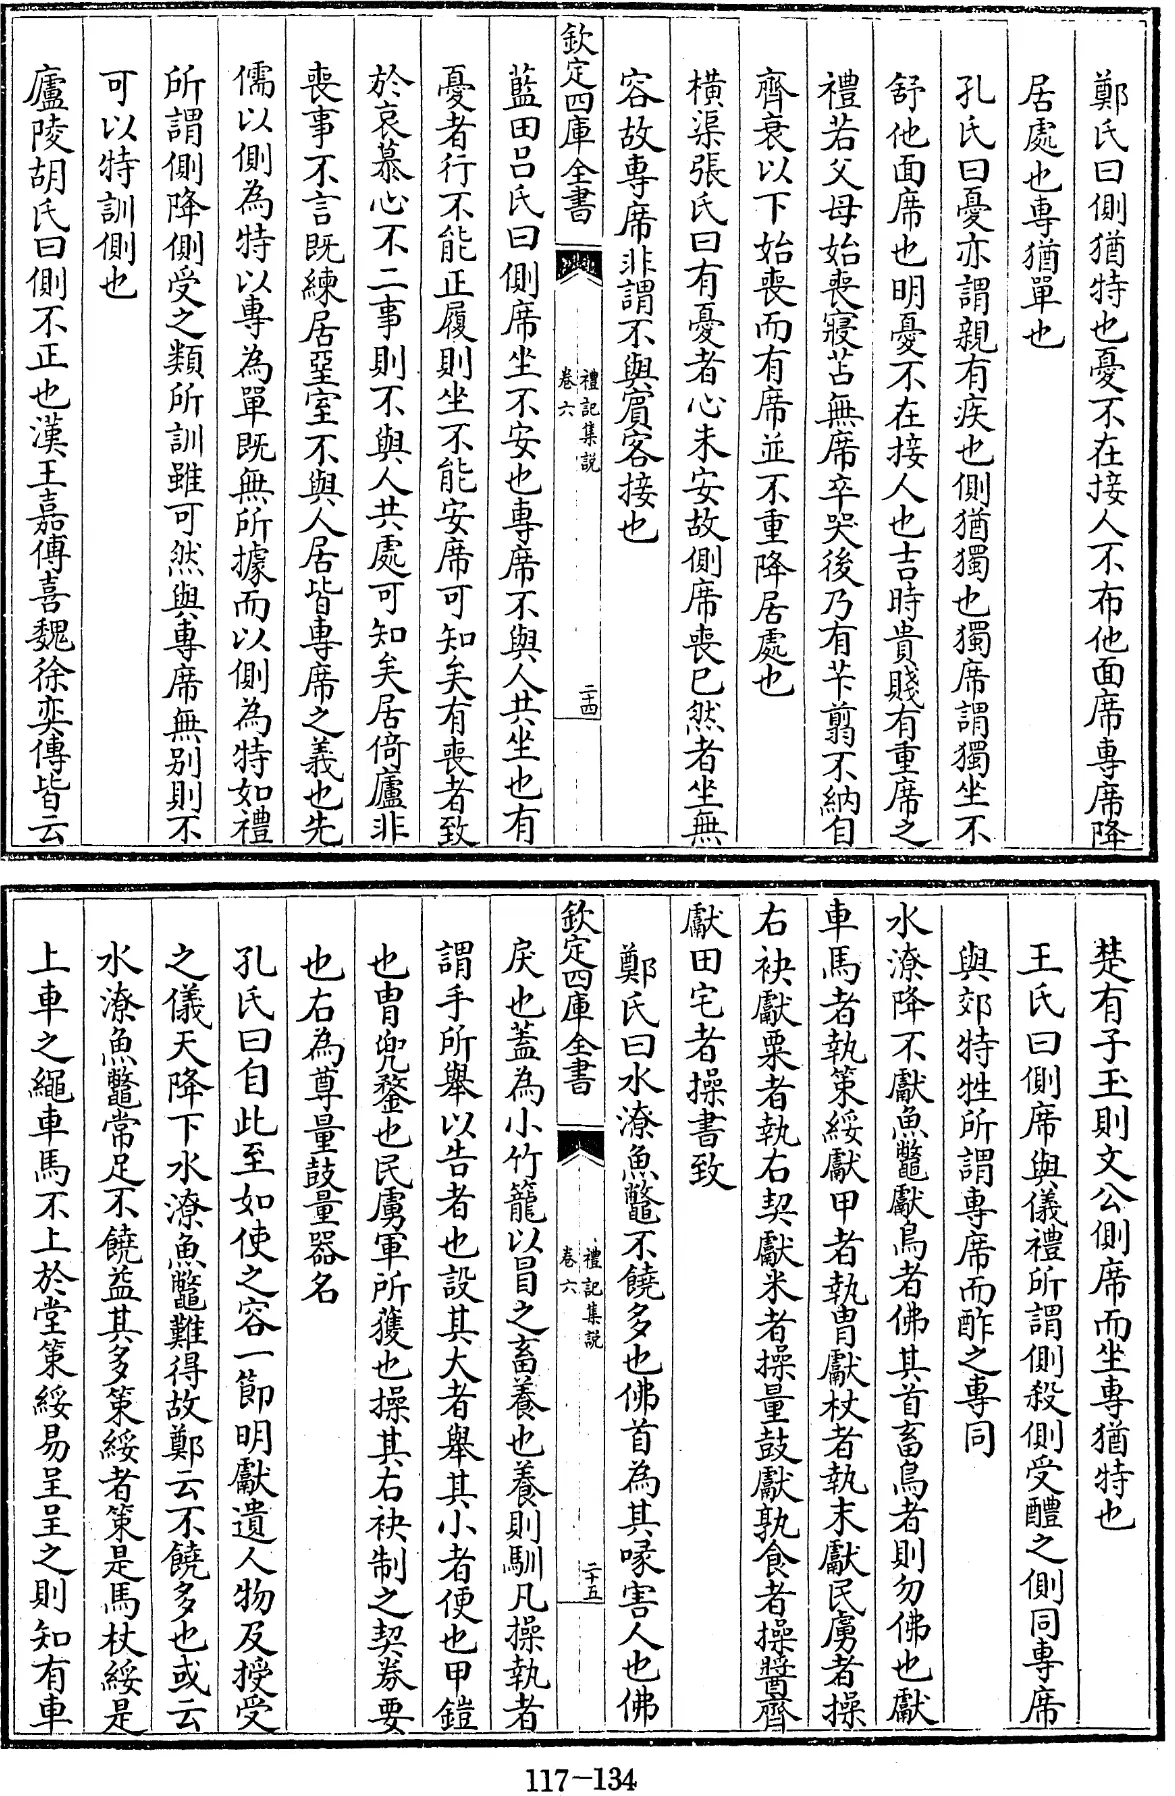 鄭氏曰側猶特也憂不在接人不布他面席專席降
居處也專猶單也
孔氏曰憂亦謂親有疾也側猶獨也獨席謂獨坐不
舒他面席也明憂不在接人也吉時貴賤有重席之
禮若父母始喪寢苫無席卒哭後乃有芐翦不納自
齊衰以下始喪而有席並不重降居處也
橫渠張氏曰有憂者心未安故側席喪已然者坐無
容故專席非謂不與賓客接也
欽定四庫全書
禮記集說
卷六
二十四
藍田呂氏曰側席坐不安也專席不與人共坐也有
憂者行不能正履則坐不能安席可知矣有喪者致
於哀慕心不二事則不與人共處可知矣居倚廬非
喪事不言既練居堊室不與人居皆專席之義也先
儒以側為特以專為單既無所據而以側為特如禮
所謂側降側受之類所訓雖可然與專席無别則不
可以特訓側也
廬陵胡氏曰側不正也漢王嘉傅喜魏徐奕傳皆云
楚有子玉則文公側席而坐專猶特也
王氏曰側席與儀禮所謂側殺側受醴之側同專席
與郊特牲所謂專席而酢之專同
水潦降不獻魚鼈獻鳥者佛其首畜鳥者則勿佛也獻
車馬者執策綏獻甲者執胄獻杖者執末獻民虜者操
右袂獻粟者執右契獻米者操量鼓獻孰食者操醬齊
獻田宅者操書致
鄭氏曰水潦魚鼈不饒多也佛首為其喙害人也佛
欽定四庫全書
禮記集說
卷六
二十五
戾也蓋為小竹籠以冒之畜養也養則馴凡操執者
謂手所舉以告者也設其大者舉其小者便也甲鎧
也胄兜鍪也民虜軍所獲也操其右袂制之契券要
也右為尊量鼓量器名
孔氏曰自此至如使之容一節明獻遺人物及授受
之儀天降下水潦魚鼈難得故鄭云不饒多也或云
水潦魚鼈常足不饒益其多策綏者策是馬杖綏是
上車之繩車馬不上於堂策綏易呈呈之則知有車
117-134